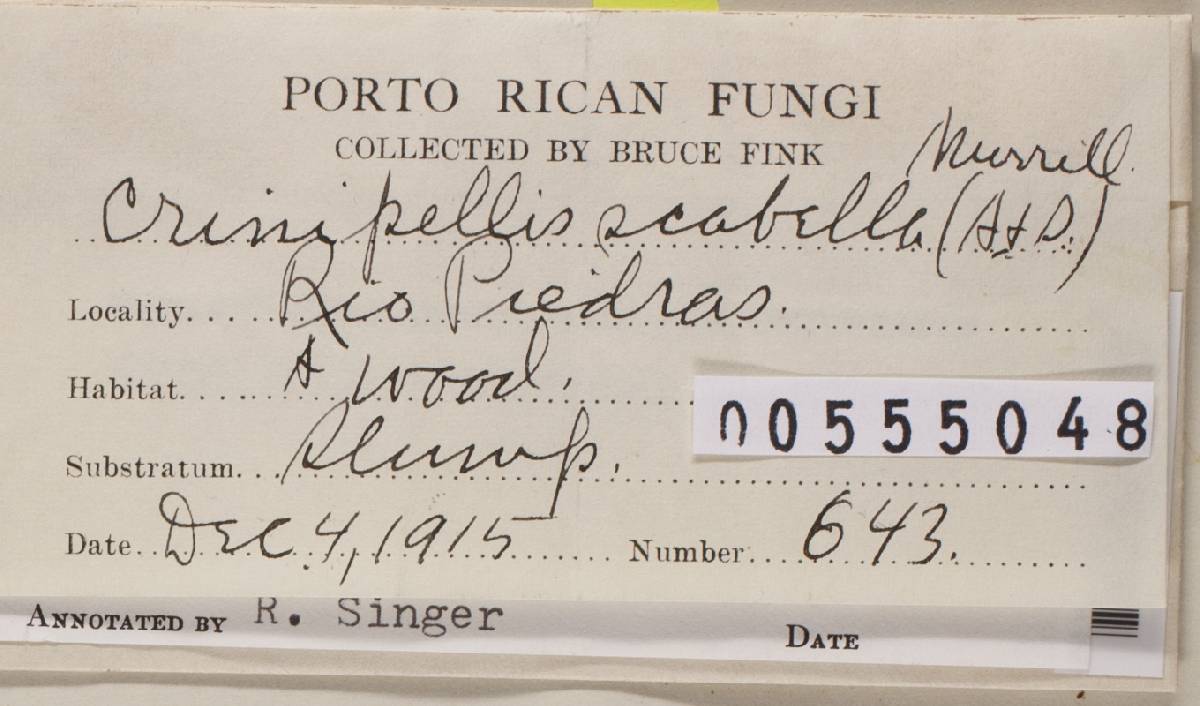 PORTO RICAN FUNGI
COLLECTED BY BRUCE FINK
Murrill.
Crinipellis scabella (A+S.)
Locality.... Rio Piedras.
Habitat.... wood.
00555048
Substratum... Stump.
Date.. Dec 4, 1915 Number... 643.
ANNOTATED BY R. Singer DATE